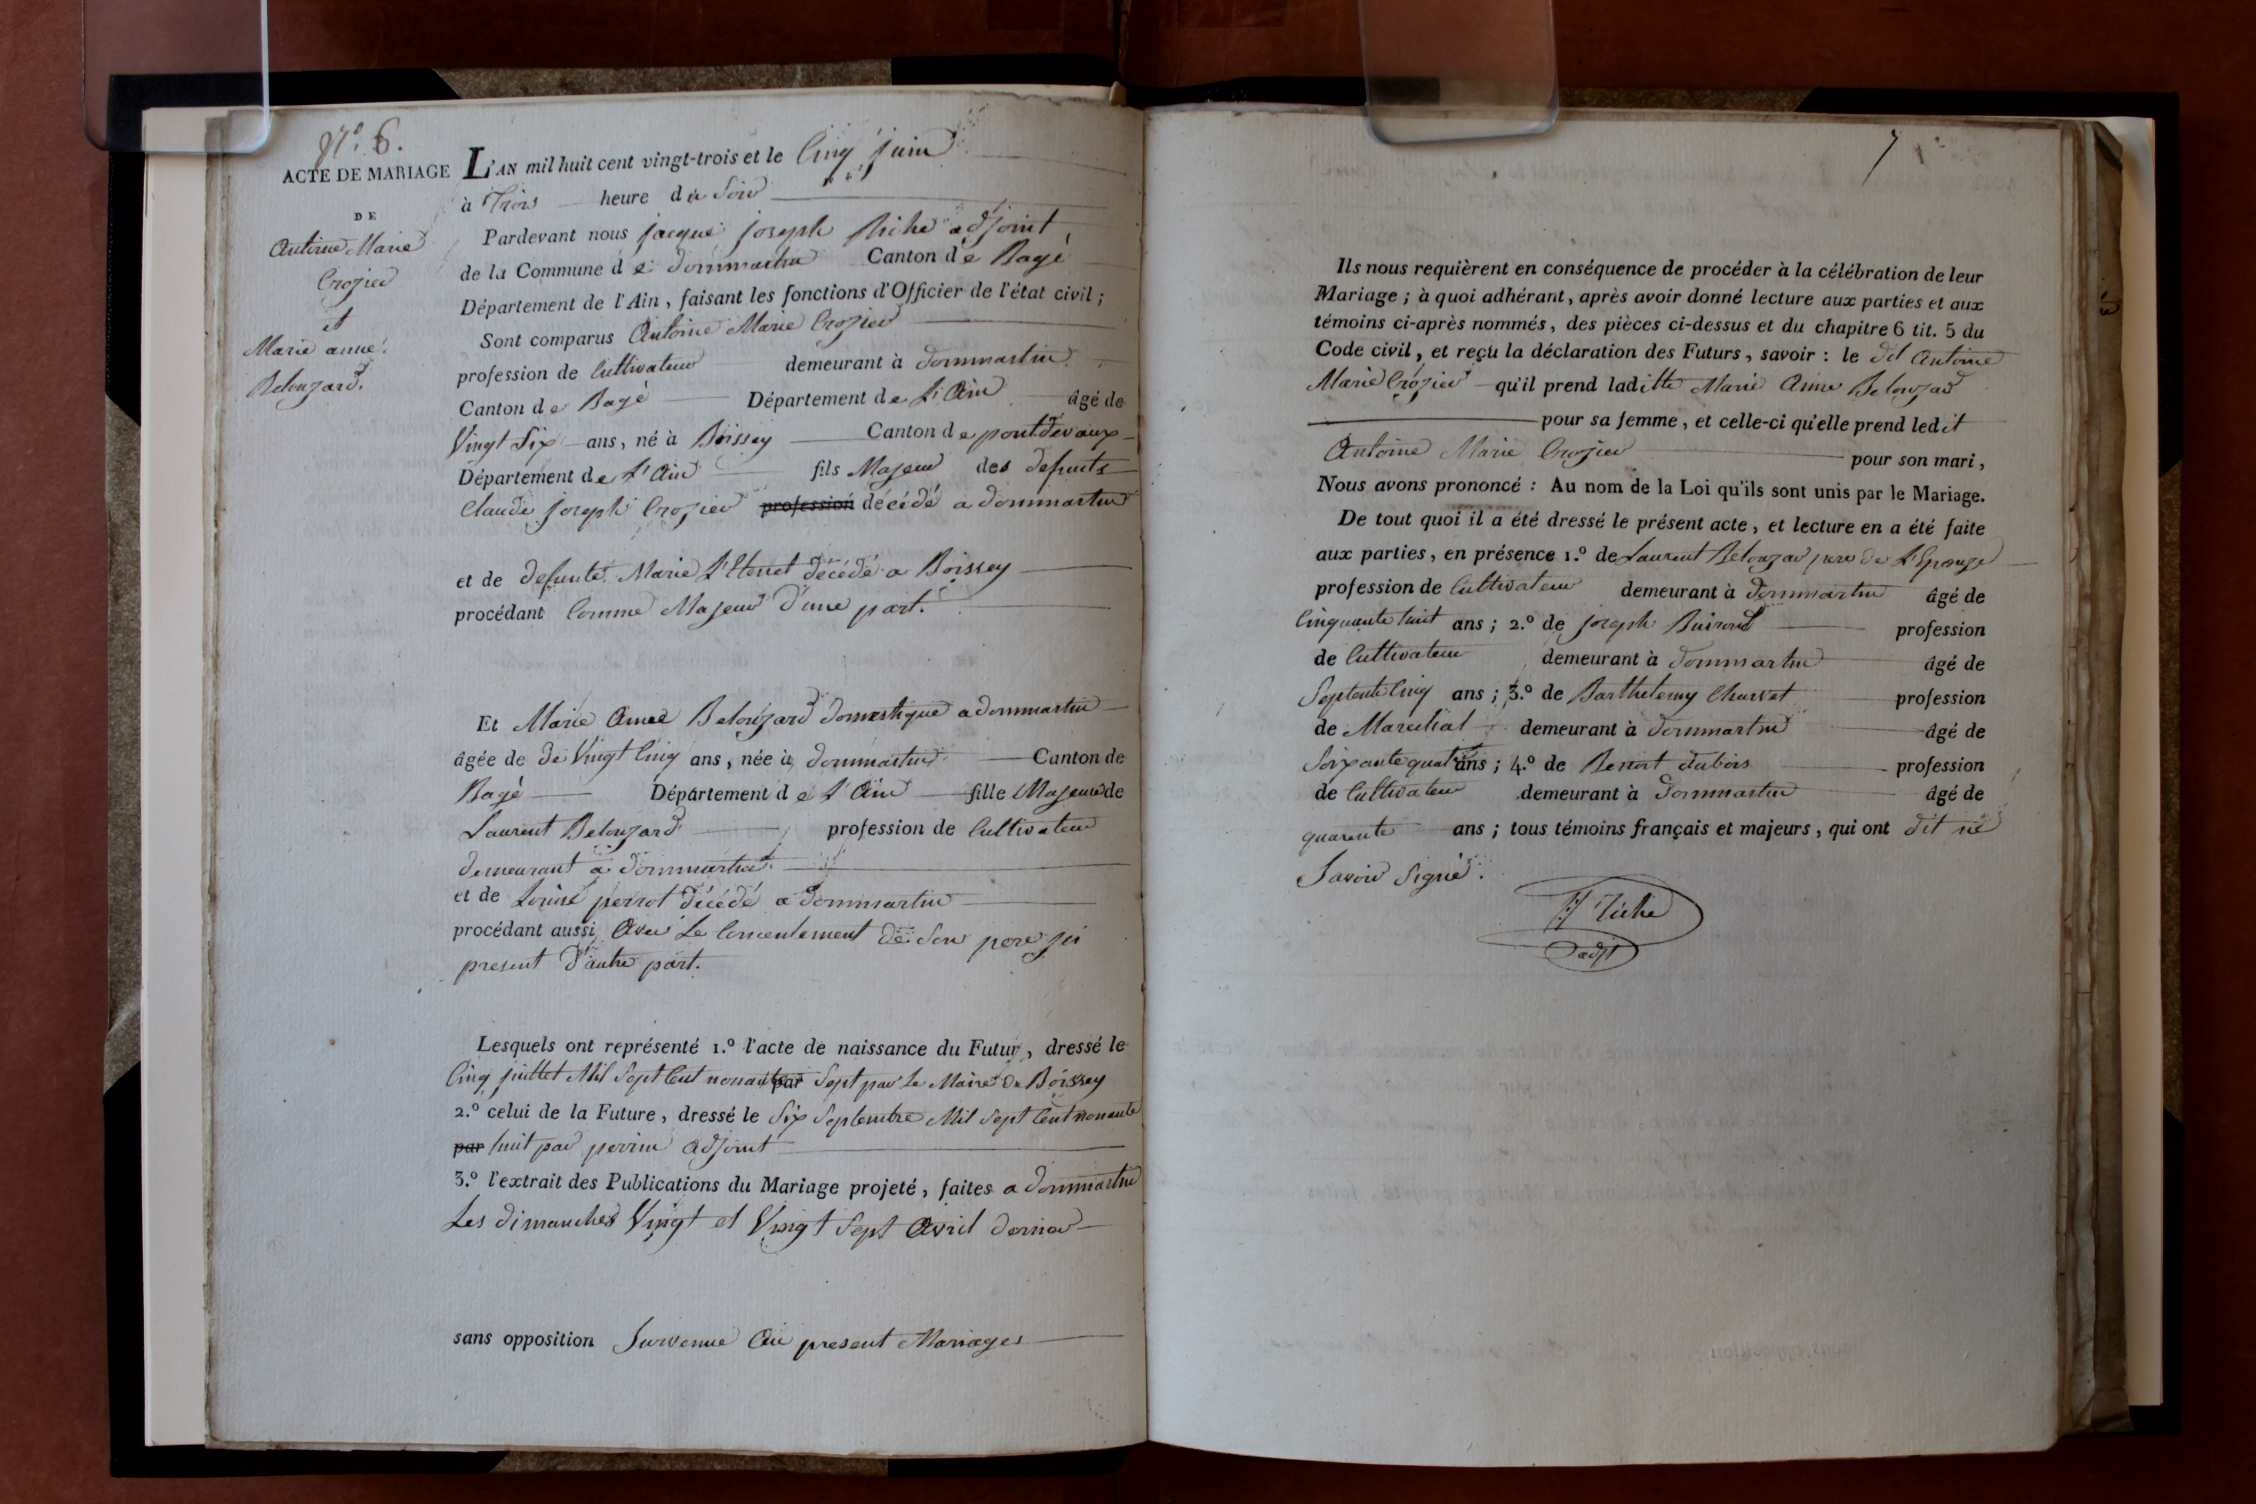 N.º 6.
ACTE DE MARIAGE
DE
Antoine Marie
Crozier
et
Marie anne
Belouzard.
L'AN mil huit cent vingt-trois et le Cinq juin
à Trois heure du Soir
Pardevant nous jacque joseph Riche adjoint
de la Commune de dommartin Canton de Bagé
Département de l'Ain, faisant les fonctions d'Officier de l'état civil ;
Sont comparus Antoine Marie Crozier
profession de Cultivateur demeurant à dommartin
Canton de Bagé Département de L'Ain âgé de
Vingt Six ans, né à Boissey Canton de pontdevaux
Département de L'Ain fils Majeur des defunts
Claude joseph Crozier profession décédé a dommartin
et de defunte Marie décédé a Boissey
procédant Comme Majeur d'une part.
Et Marie Anne Belouzard domestique a dommartin
âgée de de Vingt Cinq ans, née à dommartin Canton de
Bagé Département de L'Ain fille Majeure de
Laurent Belouzard profession de Cultivateur
demeurant a dommartin
et de Louise perrot décédé a dommartin
procédant aussi Avec Le Consentement de Son pere ici
present d'autre part.
Lesquels ont représenté 1.º l'acte de naissance du Futur, dressé le
Cinq juillet Mil Sept Cent nonante par Sept par Le Maire de Boissey
2.º celui de la Future, dressé le Six Septembre Mil Sept Cent nonante
par huit par perrin Adjoint
3.º l'extrait des Publications du Mariage projeté, faites a dommartin
Les dimanches Vingt et Vingt Sept Avril dernier
sans opposition Survenue Au present Mariages
7
Ils nous requièrent en conséquence de procéder à la célébration de leur
Mariage ; à quoi adhérant, après avoir donné lecture aux parties et aux
témoins ci-après nommés, des pièces ci-dessus et du chapitre 6 tit. 5 du
Code civil, et reçu la déclaration des Futurs, savoir : le dit Antoine
Marie Crozier qu'il prend laditte Marie Anne Belouzard
pour sa femme, et celle-ci qu'elle prend ledit
Antoine Marie Crozier pour son mari,
Nous avons prononcé : Au nom de la Loi qu'ils sont unis par le Mariage.
De tout quoi il a été dressé le présent acte, et lecture en a été faite
aux parties, en présence 1.º de Laurent Belouzar pere de L'Epouze
profession de Cultivateur demeurant à dommartin âgé de
Cinquante huit ans ; 2.º de joseph profession
de Cultivateur demeurant à dommartin âgé de
Septente Cinq ans ; 3.º de Barthelemy Charvet profession
de Marechal demeurant à dommartin âgé de
Soixante quatre ans ; 4.º de Benoit dubois profession
de Cultivateur demeurant à dommartin âgé de
quarente ans ; tous témoins français et majeurs, qui ont dit ne
Savoir Signé.
Riche
adjt